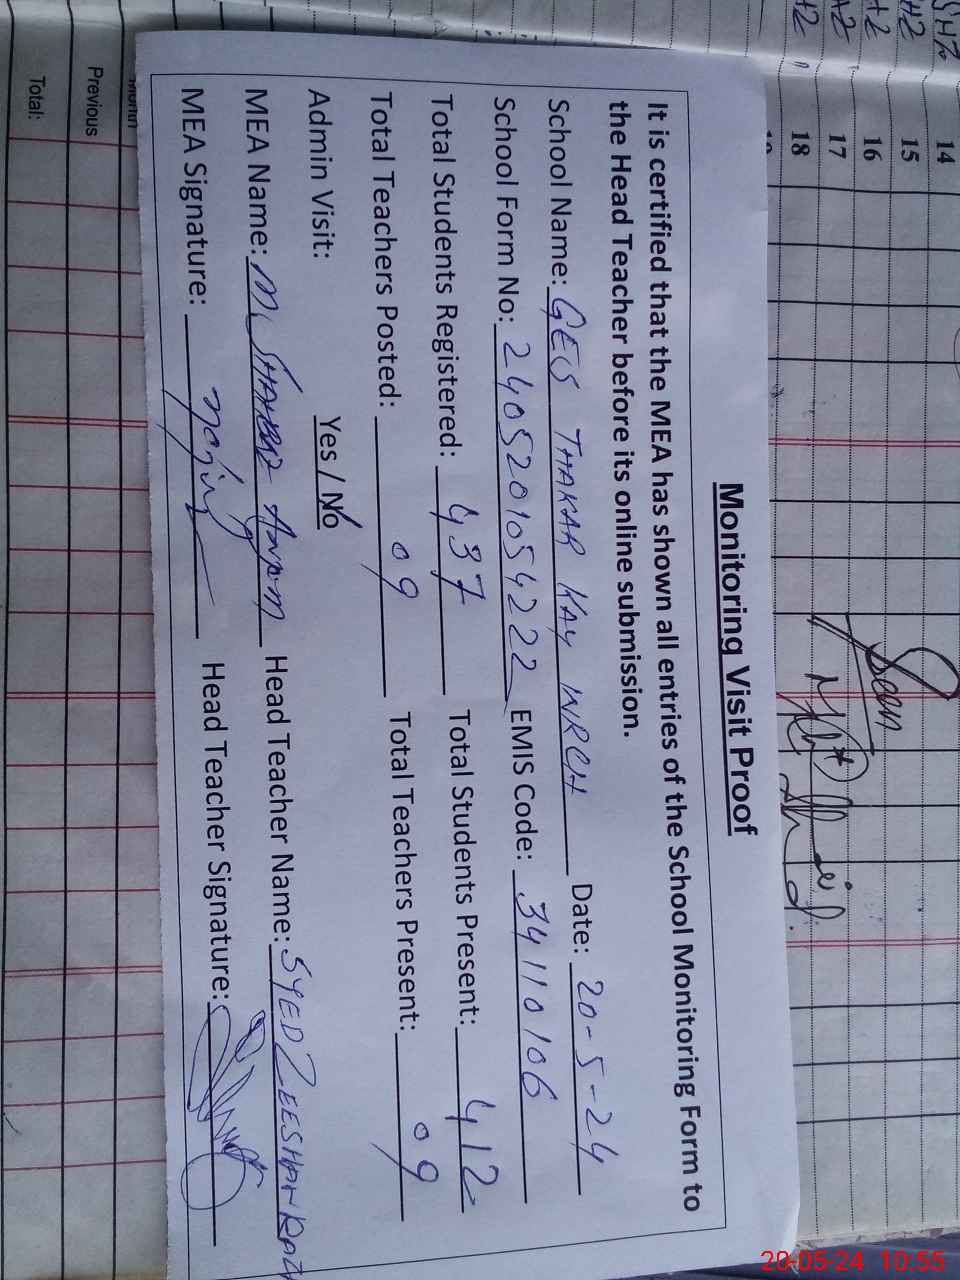 Monitoring Visit Proof
It is certified that the MEA has shown all entries of the School Monitoring Form to
the Head Teacher before its online submission.
School Name: GES THAKAR KAY WRCH Date: 20-5-24
School Form No: 2405201054222 EMIS Code: 34110106
Total Students Registered: 437 Total Students Present: 412
Total Teachers Posted: 09 Total Teachers Present: 09
Admin Visit: Yes / No
MEA Name: M. SHAHBAZ Head Teacher Name: SYED ZEESHAN RAZA
MEA Signature: Head Teacher Signature:
14
15
16
17
18
Seen
Previous
Total:
20-05-24 10:55